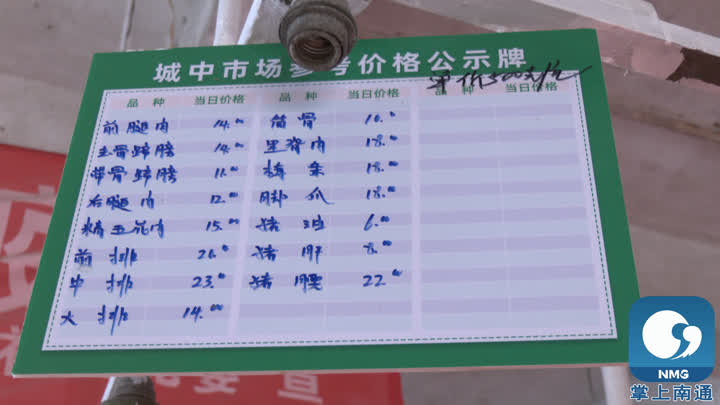 城中市场参考价格公示牌
单价500克/元
品种 当日价格 品种 当日价格 品种 当日价格
前腿肉 14.00 筒骨 10.0
去骨蹄膀 14.00 里脊肉 18.00
带骨蹄膀 11.00 梅条 18.00
后腿肉 12.00 脚爪 18.00
精五花肉 15.00 猪油 6.00
前排 26.0 猪肝 8.00
中排 23.0 猪腰 22.00
大排 14.00
NMG
掌上南通